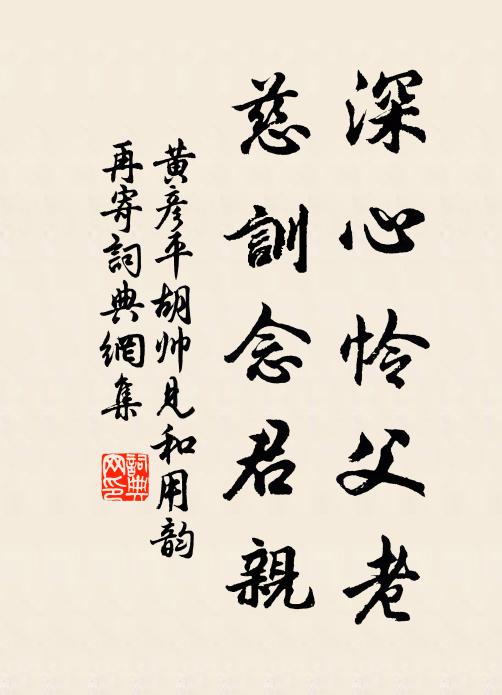 深心怜父老
慈訓念君親
黄彦平胡帅見和用韵
再寄詞典網集
詞典网印